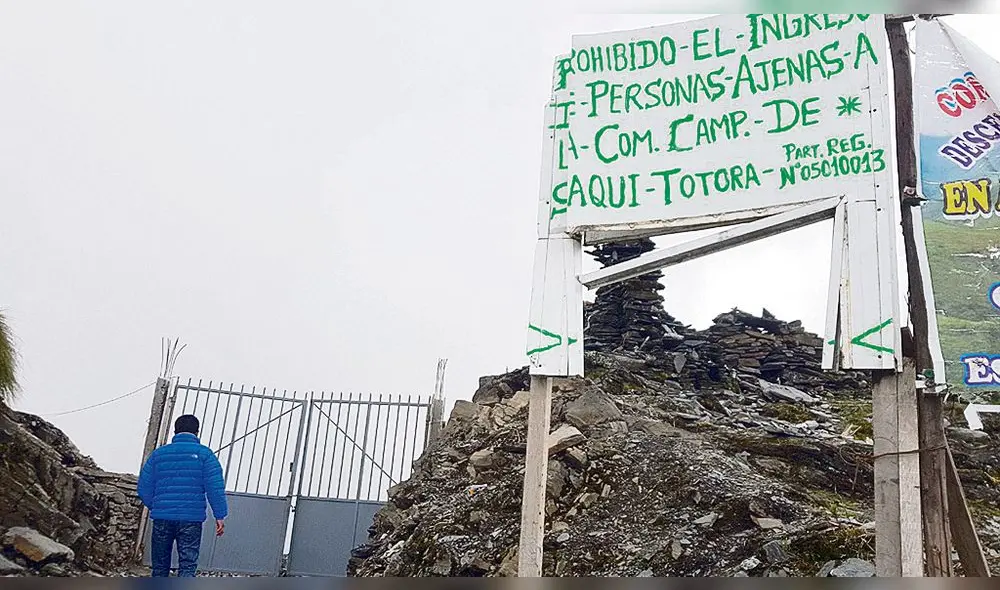 PROHIBIDO-EL-INGRESO
DE-PERSONAS-AJENAS-A
LA-COM. CAMP.-DE
SAQUI-TOTORA-
PART. REG.
N°05010013
EN